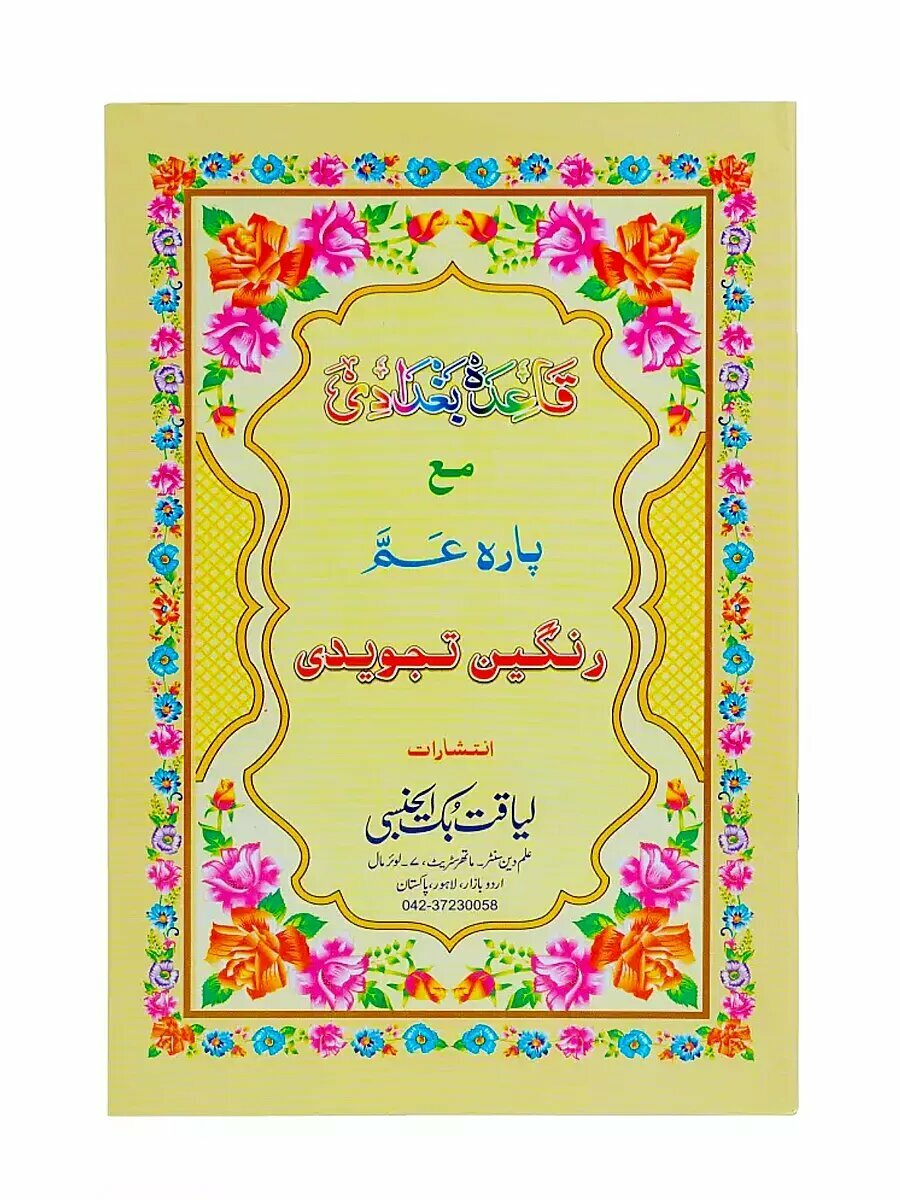 قَاعِدَہ بَغْدَادِیْ
مع
پارہ عَمَّ
رنگین تجویدی
انتشارات
لیاقت بُک ایجنسی
علم دین سنٹر۔ ماتھر سٹریٹ، ۷۔ لوئر مال
اردو بازار، لاہور، پاکستان
042-37230058